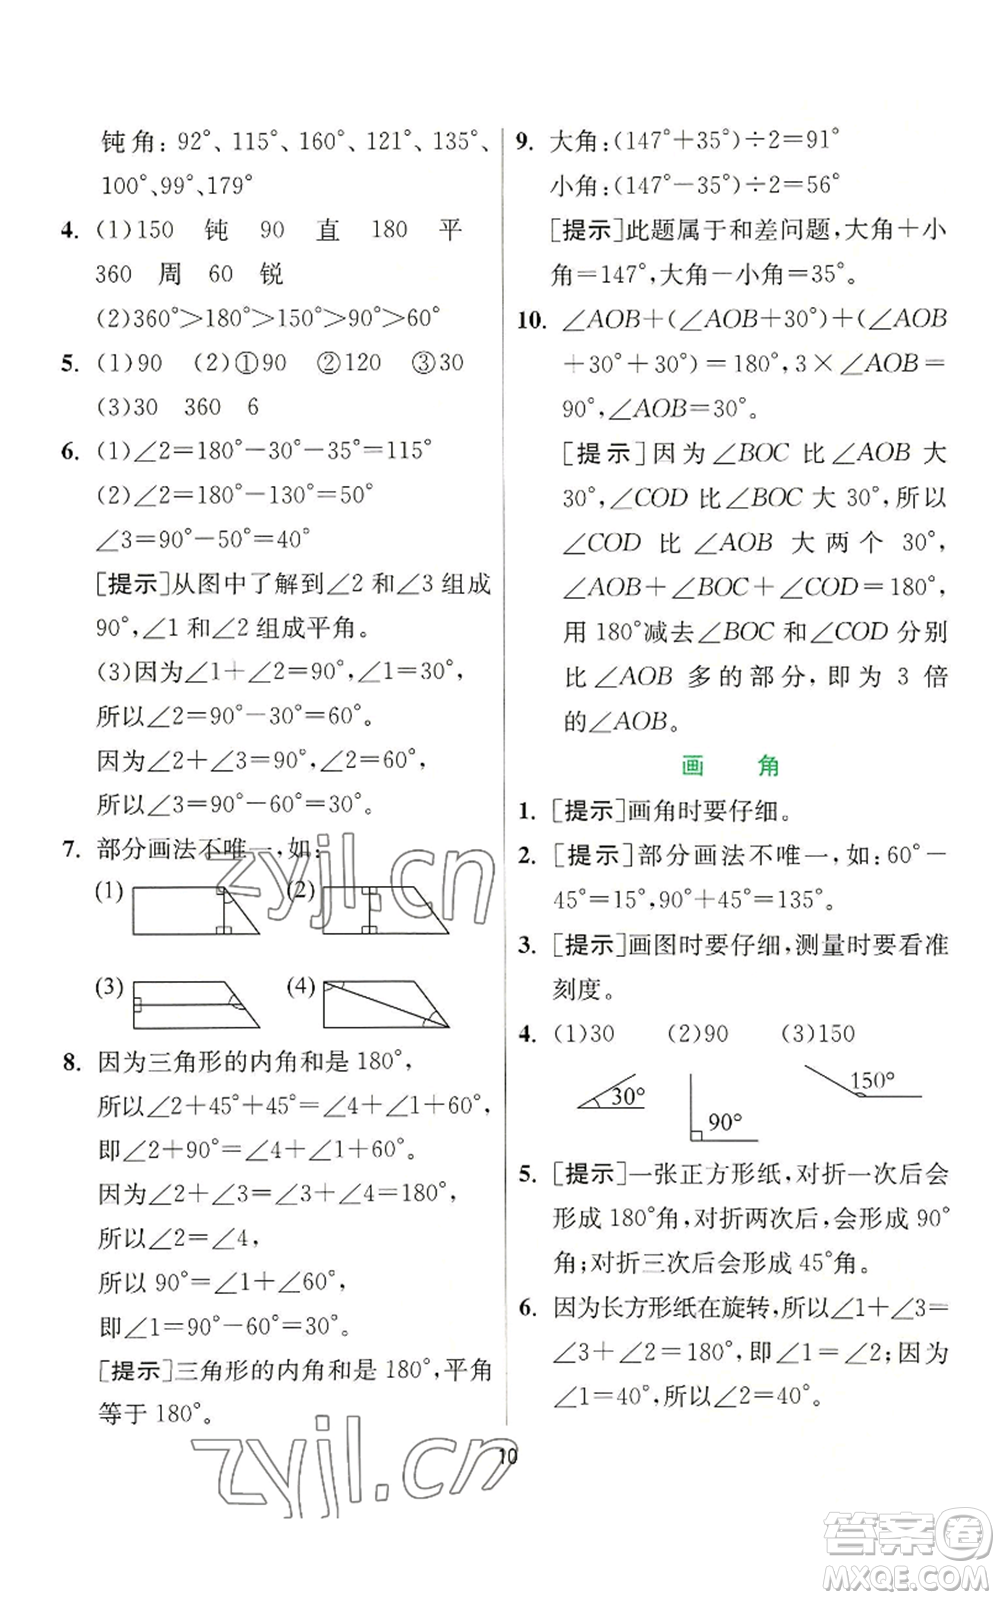 钝角:92°、115°、160°、121°、135°、
100°、99°、179°
4. (1)150 钝 90 直 180 平
360 周 60 锐
(2)360°>180°>150°>90°>60°
5. (1)90 (2)①90 ②120 ③30
(3)30 360 6
6. (1)∠2=180°-30°-35°=115°
(2)∠2=180°-130°=50°
∠3=90°-50°=40°
[提示]从图中了解到∠2和∠3组成
90°,∠1和∠2组成平角。
(3)因为∠1+∠2=90°,∠1=30°,
所以∠2=90°-30°=60°。
因为∠2+∠3=90°,∠2=60°,
所以∠3=90°-60°=30°。
7. 部分画法不唯一,如:
(1) (2)
(3) (4)
8. 因为三角形的内角和是180°,
所以∠2+45°+45°=∠4+∠1+60°,
即∠2+90°=∠4+∠1+60°。
因为∠2+∠3=∠3+∠4=180°,
所以∠2=∠4,
所以90°=∠1+60°,
即∠1=90°-60°=30°。
[提示]三角形的内角和是180°,平角
等于180°。
9. 大角:(147°+35°)÷2=91°
小角:(147°-35°)÷2=56°
[提示]此题属于和差问题,大角+小
角=147°,大角-小角=35°。
10. ∠AOB+(∠AOB+30°)+(∠AOB
+30°+30°)=180°,3×∠AOB=
90°,∠AOB=30°。
[提示]因为∠BOC比∠AOB大
30°,∠COD比∠BOC大30°,所以
∠COD比∠AOB大两个30°,
∠AOB+∠BOC+∠COD=180°,
用180°减去∠BOC和∠COD分别
比∠AOB多的部分,即为3倍
的∠AOB。
画 角
1. [提示]画角时要仔细。
2. [提示]部分画法不唯一,如:60°-
45°=15°,90°+45°=135°。
3. [提示]画图时要仔细,测量时要看准
刻度。
4. (1)30 (2)90 (3)150
30° 90° 150°
5. [提示]一张正方形纸,对折一次后会
形成180°角,对折两次后,会形成90°
角;对折三次后会形成45°角。
6. 因为长方形纸在旋转,所以∠1+∠3=
∠3+∠2=180°,即∠1=∠2;因为
∠1=40°,所以∠2=40°。
10
zyjl.cn
zyjl.cn
答案卷
MXQE.COM